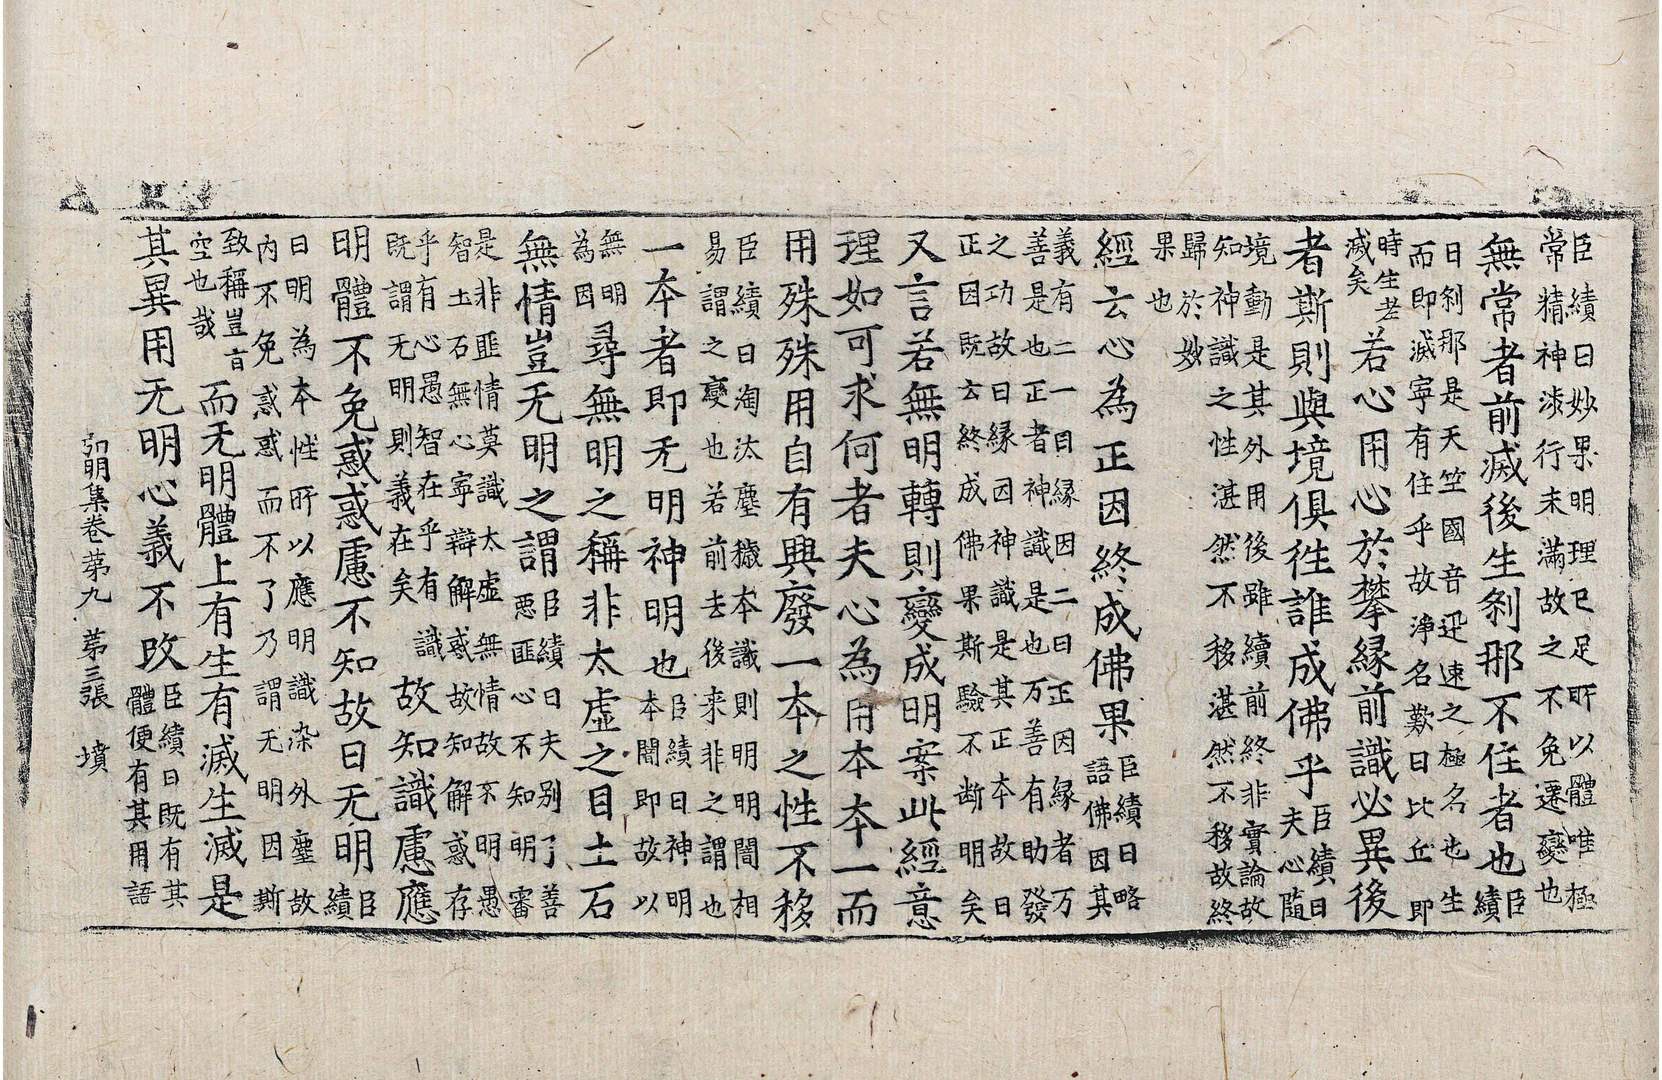 臣績曰妙果明理已足所以體唯極
常精神渉行未滿故之不免遷變也
無常者前滅後生剎那不住者也臣績
曰剎那是天竺國音迅速之極名也生
而即滅寧有住乎故淨名歎曰比丘即
時生老滅矣若心用心於攀縁前識必異後
者斯則與境俱徃誰成佛乎臣績曰夫心隨
境動是其外用後雖續前終非實論故
知神識之性湛然不移湛然不移故終
歸於妙果也
經云心為正因終成佛果臣績曰略語佛因其
義有二一曰縁因二曰正因縁者万
善是也正者神識是也万善有助發
之功故曰縁因神識是其正本故曰
正因既云終成佛果斯驗不断明矣
又言若無明轉則變成明案此經意
理如可求何者夫心為用本本一而
用殊殊用自有興廢一本之性不移
臣績曰淘汰塵穢本識則明明闇相
易謂之變也若前去後来非之謂也
一本者即无明神明也臣績曰神明本闇即故以
無明為因尋無明之稱非太虛之目土石
無情豈无明之謂臣績曰夫别了善惡匪心不知明審
是非匪情莫識太虛無情故不明愚
智土石無心寧辯解惑故知解惑存
乎有心愚智在乎有識既謂无明則義在矣故知識慮應
明體不免惑惑慮不知故曰无明臣績
曰明為本性所以應明識染外塵故
内不免惑惑而不了乃謂无明因斯
致稱豈旨空也哉而无明體上有生有滅生滅是
其異用无明心義不改臣績曰既有其體便有其用語
弘明集卷苐九 苐三張 墳